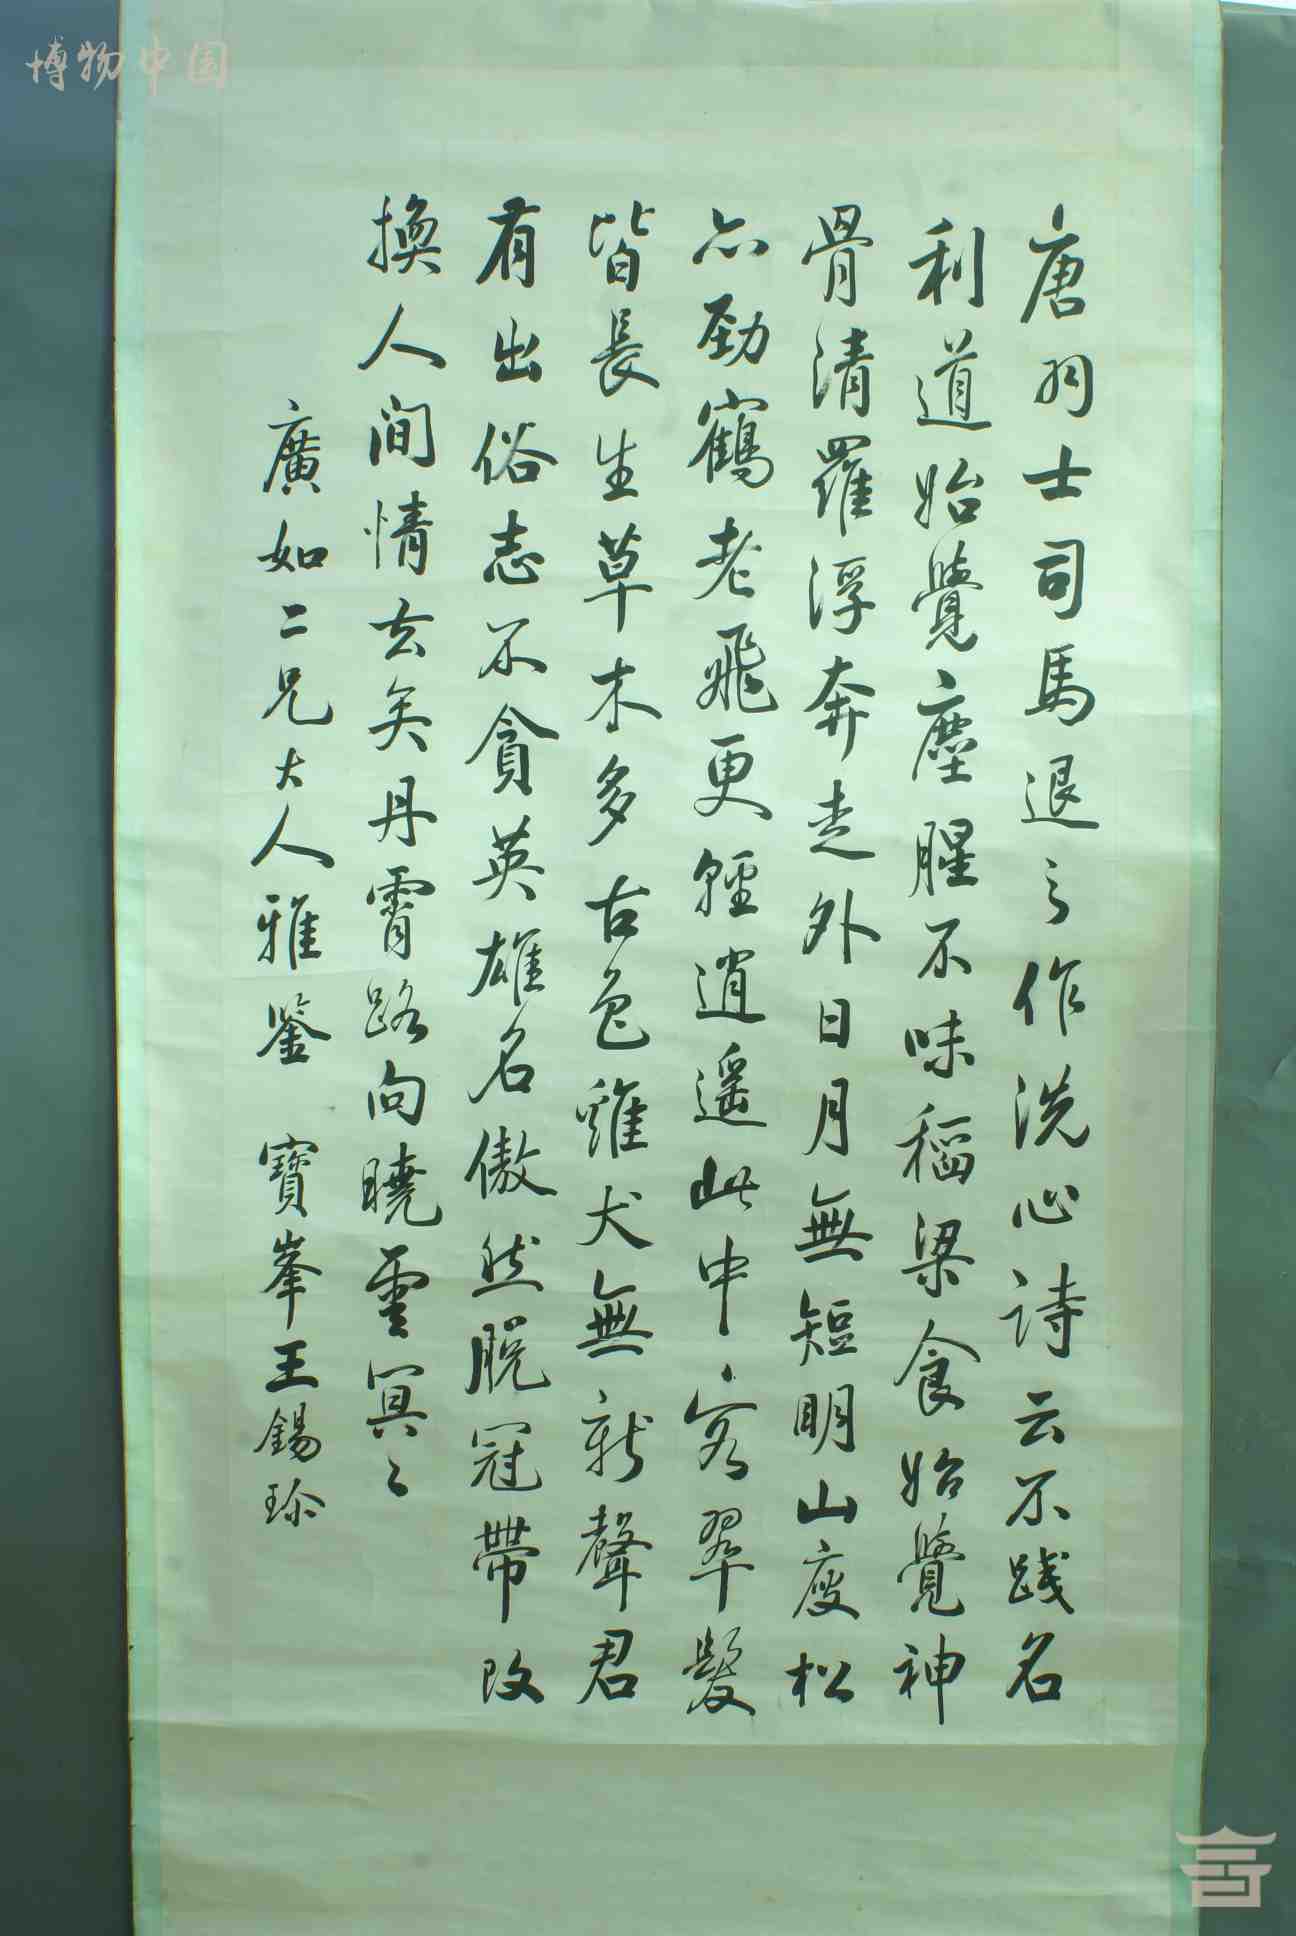 唐羽士司馬退之作洗心詩云不踐名
利道始覺塵腥不味稻梁食始覺神
骨清羅浮奔走外日月無短明山瘦松
亦勁鶴老飛更輕逍遥此中客翠髮
皆長生草木多古色雞犬無新聲君
有出俗志不貪英雄名傲然脫冠帶改
換人间情去矣丹霄路向曉雲冥〻
廣如二兄大人雅鑒 寶峯王錫珍
博物中国